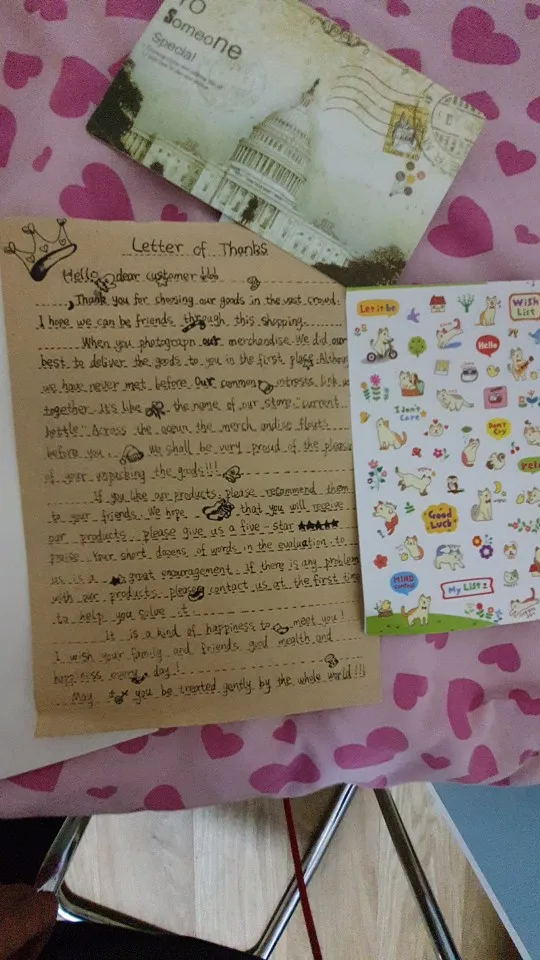 TO
Someone
Special
Letter of Thanks
Hello dear customer !!!
Thank you for choosing our goods in the vast crowd.
I hope we can be friends through this shopping.
When you photograph our merchandise. We did our
best to deliver the goods to you in the first place. Althoug
we have never met before our common intrests link us
together. It's like the name of our store, "current
bottle". Across the ocean the merch andise floats
before you. we shall be very proud of the pleasu
of your unpacking the goods!!!
If you like our products. please recommend them
to your friends. We hope that you will receive
our products please give us a five-star ★★★★★
praise. Your short dozens of words in the evaluation to
us is a great encouragement. If there is any problem
with our products. please contact us at the first time
to help you solve it
It is a kind of happiness to meet you!
I wish your family and friends good mealth and
happiness every day!
May you be treated gently by the whole world!!!
Let it be
Wish
List
Hello
I don't
Care
Don't
Cry
Rela
Good
Luck
MIND
My LIST